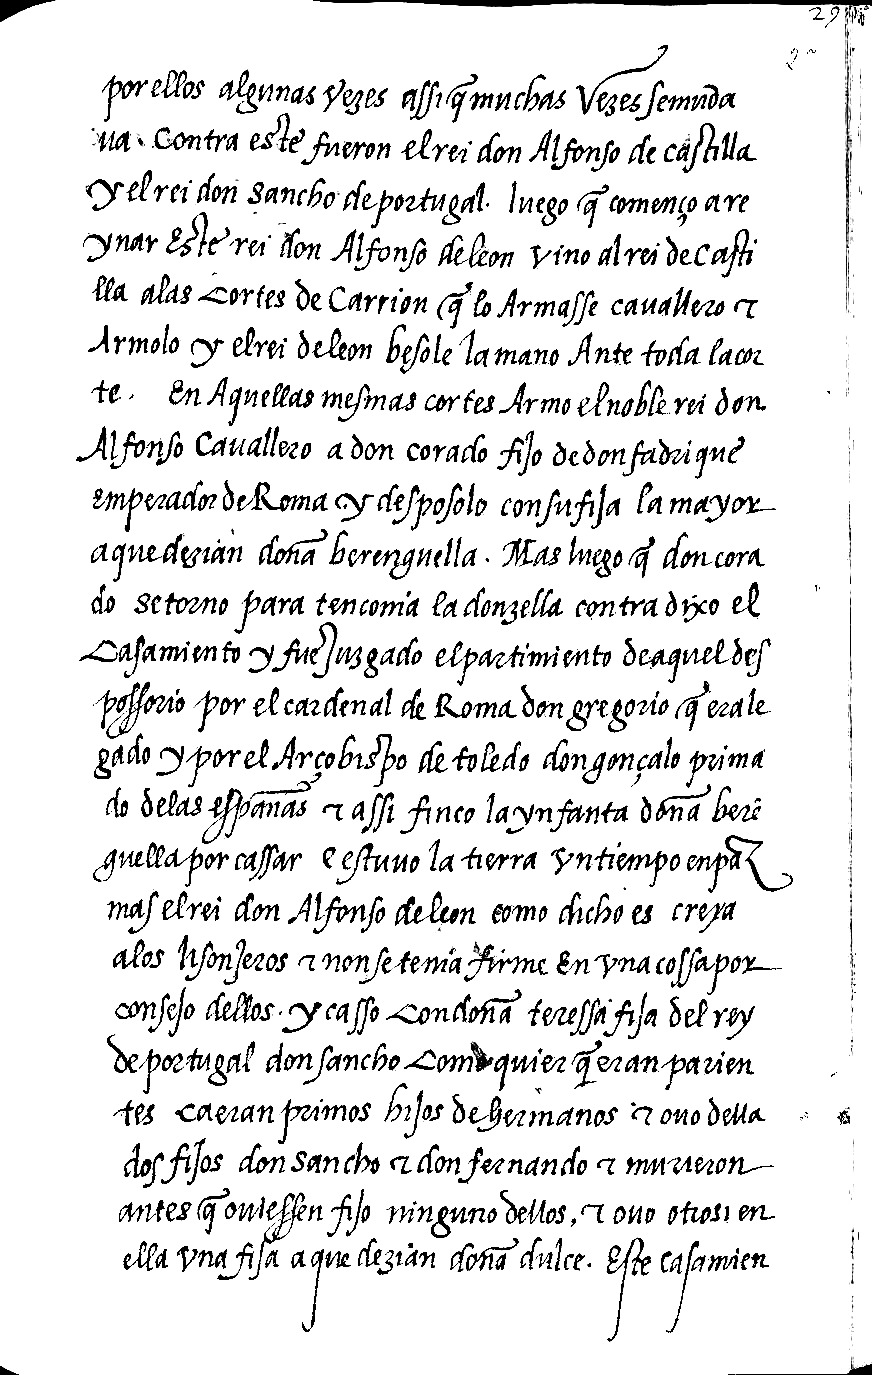 29
2
por ellos algunas vezes assi q̃ muchas vezes se muda
ua. Contra este fueron el rei don Alfonso de castilla
y el rei don sancho de portugal. luego q̃ començo a re
ynar Este rei don Alfonso de leon vino al rei de Casti
lla a las Cortes de Carrion q̃ lo Armasse cauallero τ
Armolo y el rei de leon besole la mano Ante toda la cor
te. En Aquellas mesmas cortes Armo el noble rei don
Alfonso Cauallero a don corado fijo de don fadrique
Emperador de Roma y desposolo con su fija la mayor
a que dezian doña berenguella. Mas luego q̃ don cora
do se torno para tenconia la donzella contradixo el
Casamiento y fue juzgado el partimiento de aquel des
possorio por el cardenal de Roma don gregorio q̃ era le
gado y por el Arçobispo de toledo don gonçalo prima
do de las españas τ assi finco la ynfanta doña berẽ
guella por cassar e estuuo la tierra vn tiempo en paz
mas el rei don Alfonso de leon como dicho es creya
a los lisonjeros τ non se tenia firme En vna cossa por
consejo dellos. y casso Con doña teressa fija del rey
de portugal don sancho Como quier q̃ eran parien
tes ca eran primos hijos de hermanos τ ouo della
dos fijos don sancho τ don fernando τ murieron
antes q̃ ouiessen fijo ninguno dellos, τ ouo otrosi en
ella vna fija a que dezian doña dulce. Este casamien